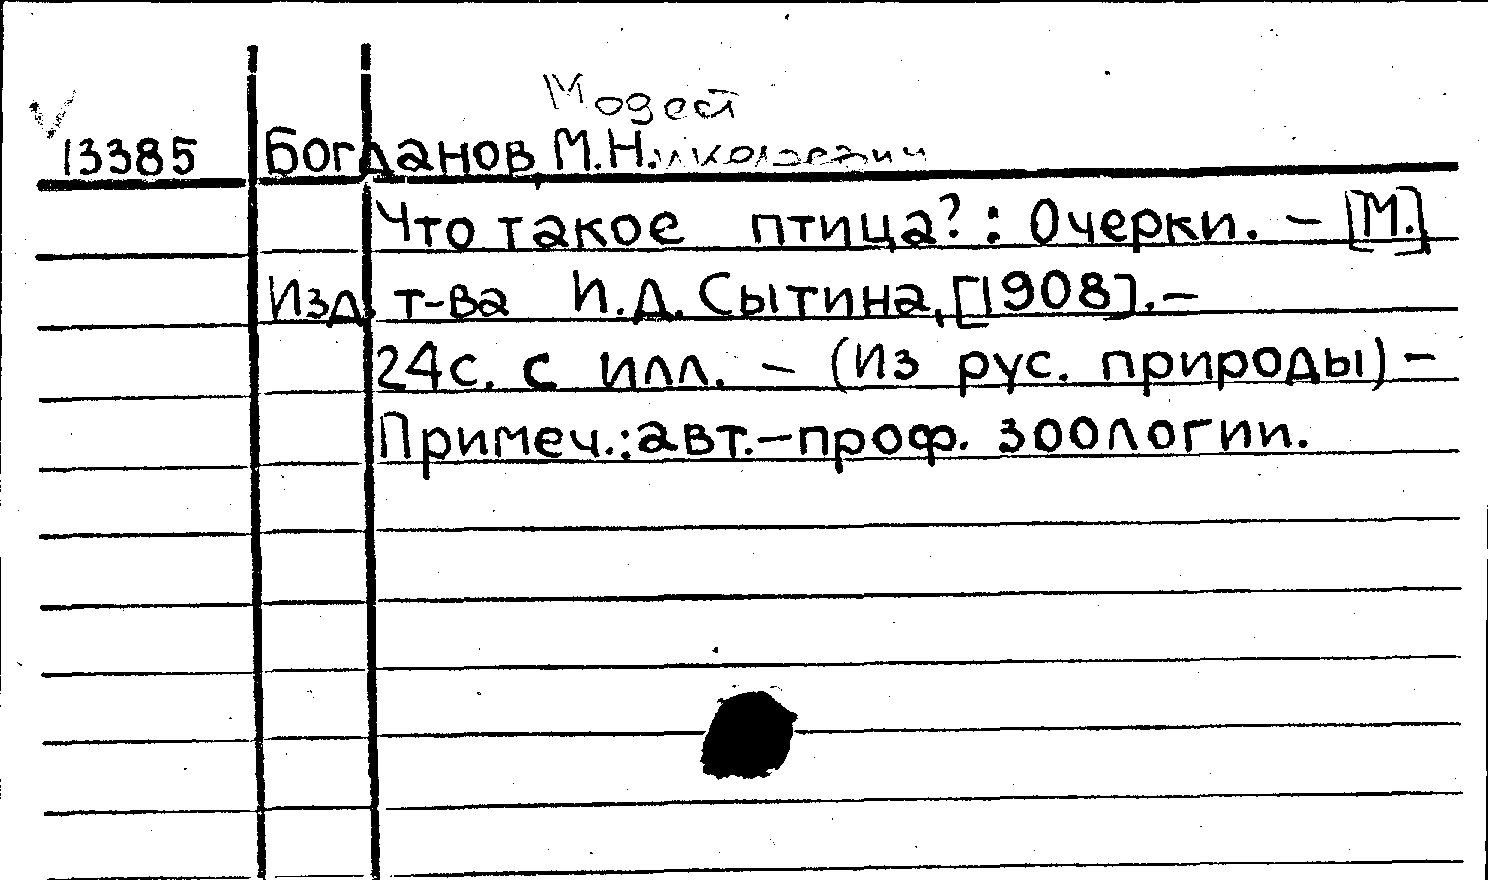 Модест
13385 Богданов, М.Н.иколаевич
Что такое птица? : Очерки. – [М.]
Изд. т-ва И.Д. Сытина, [1908]. –
24с. с илл. – (Из рус. природы) –
Примеч.: авт. – проф. зоологии.